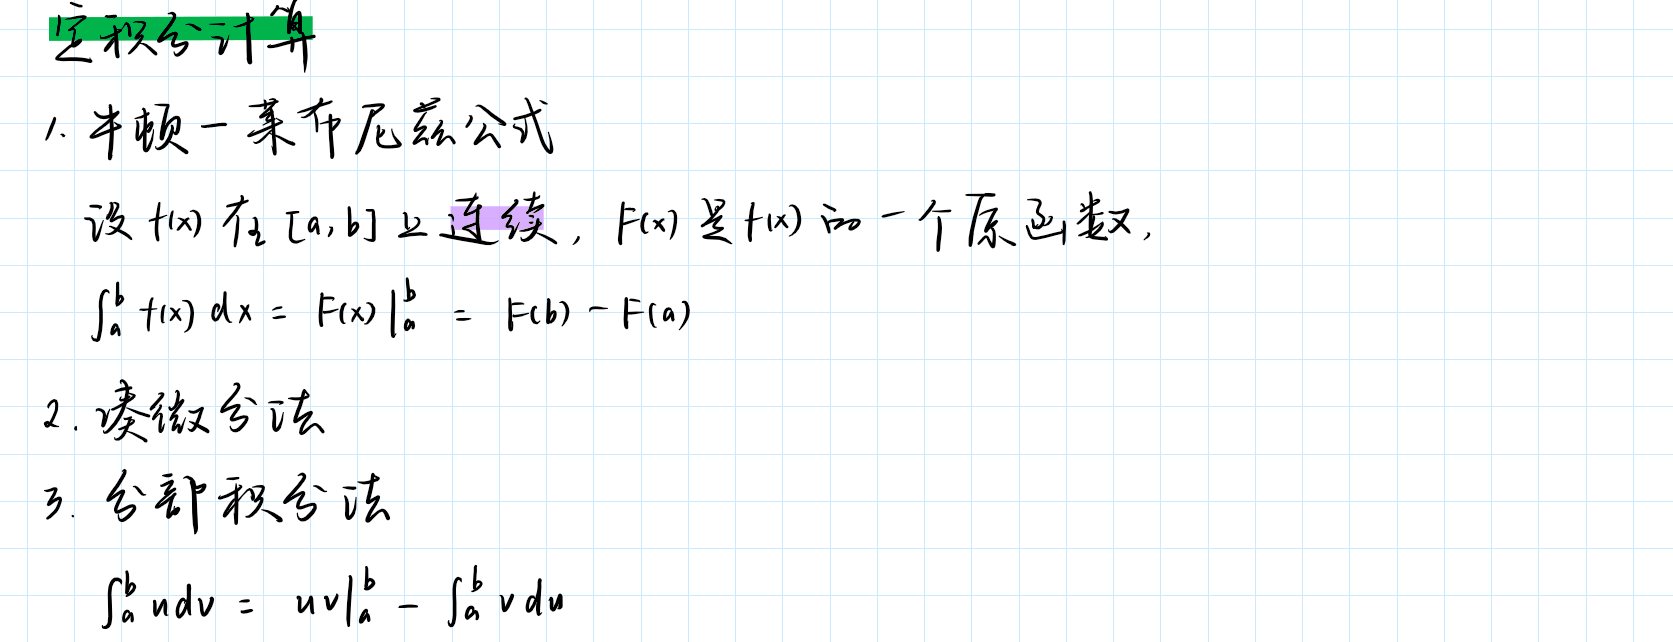 定积分计算
1. 牛顿-莱布尼兹公式
设 f(x) 在 [a, b] 上连续, F(x) 是 f(x) 的一个原函数,
∫_a^b f(x) dx = F(x)|_a^b = F(b) - F(a)
2. 凑微分法
3. 分部积分法
∫_a^b u dv = uv|_a^b - ∫_a^b v du